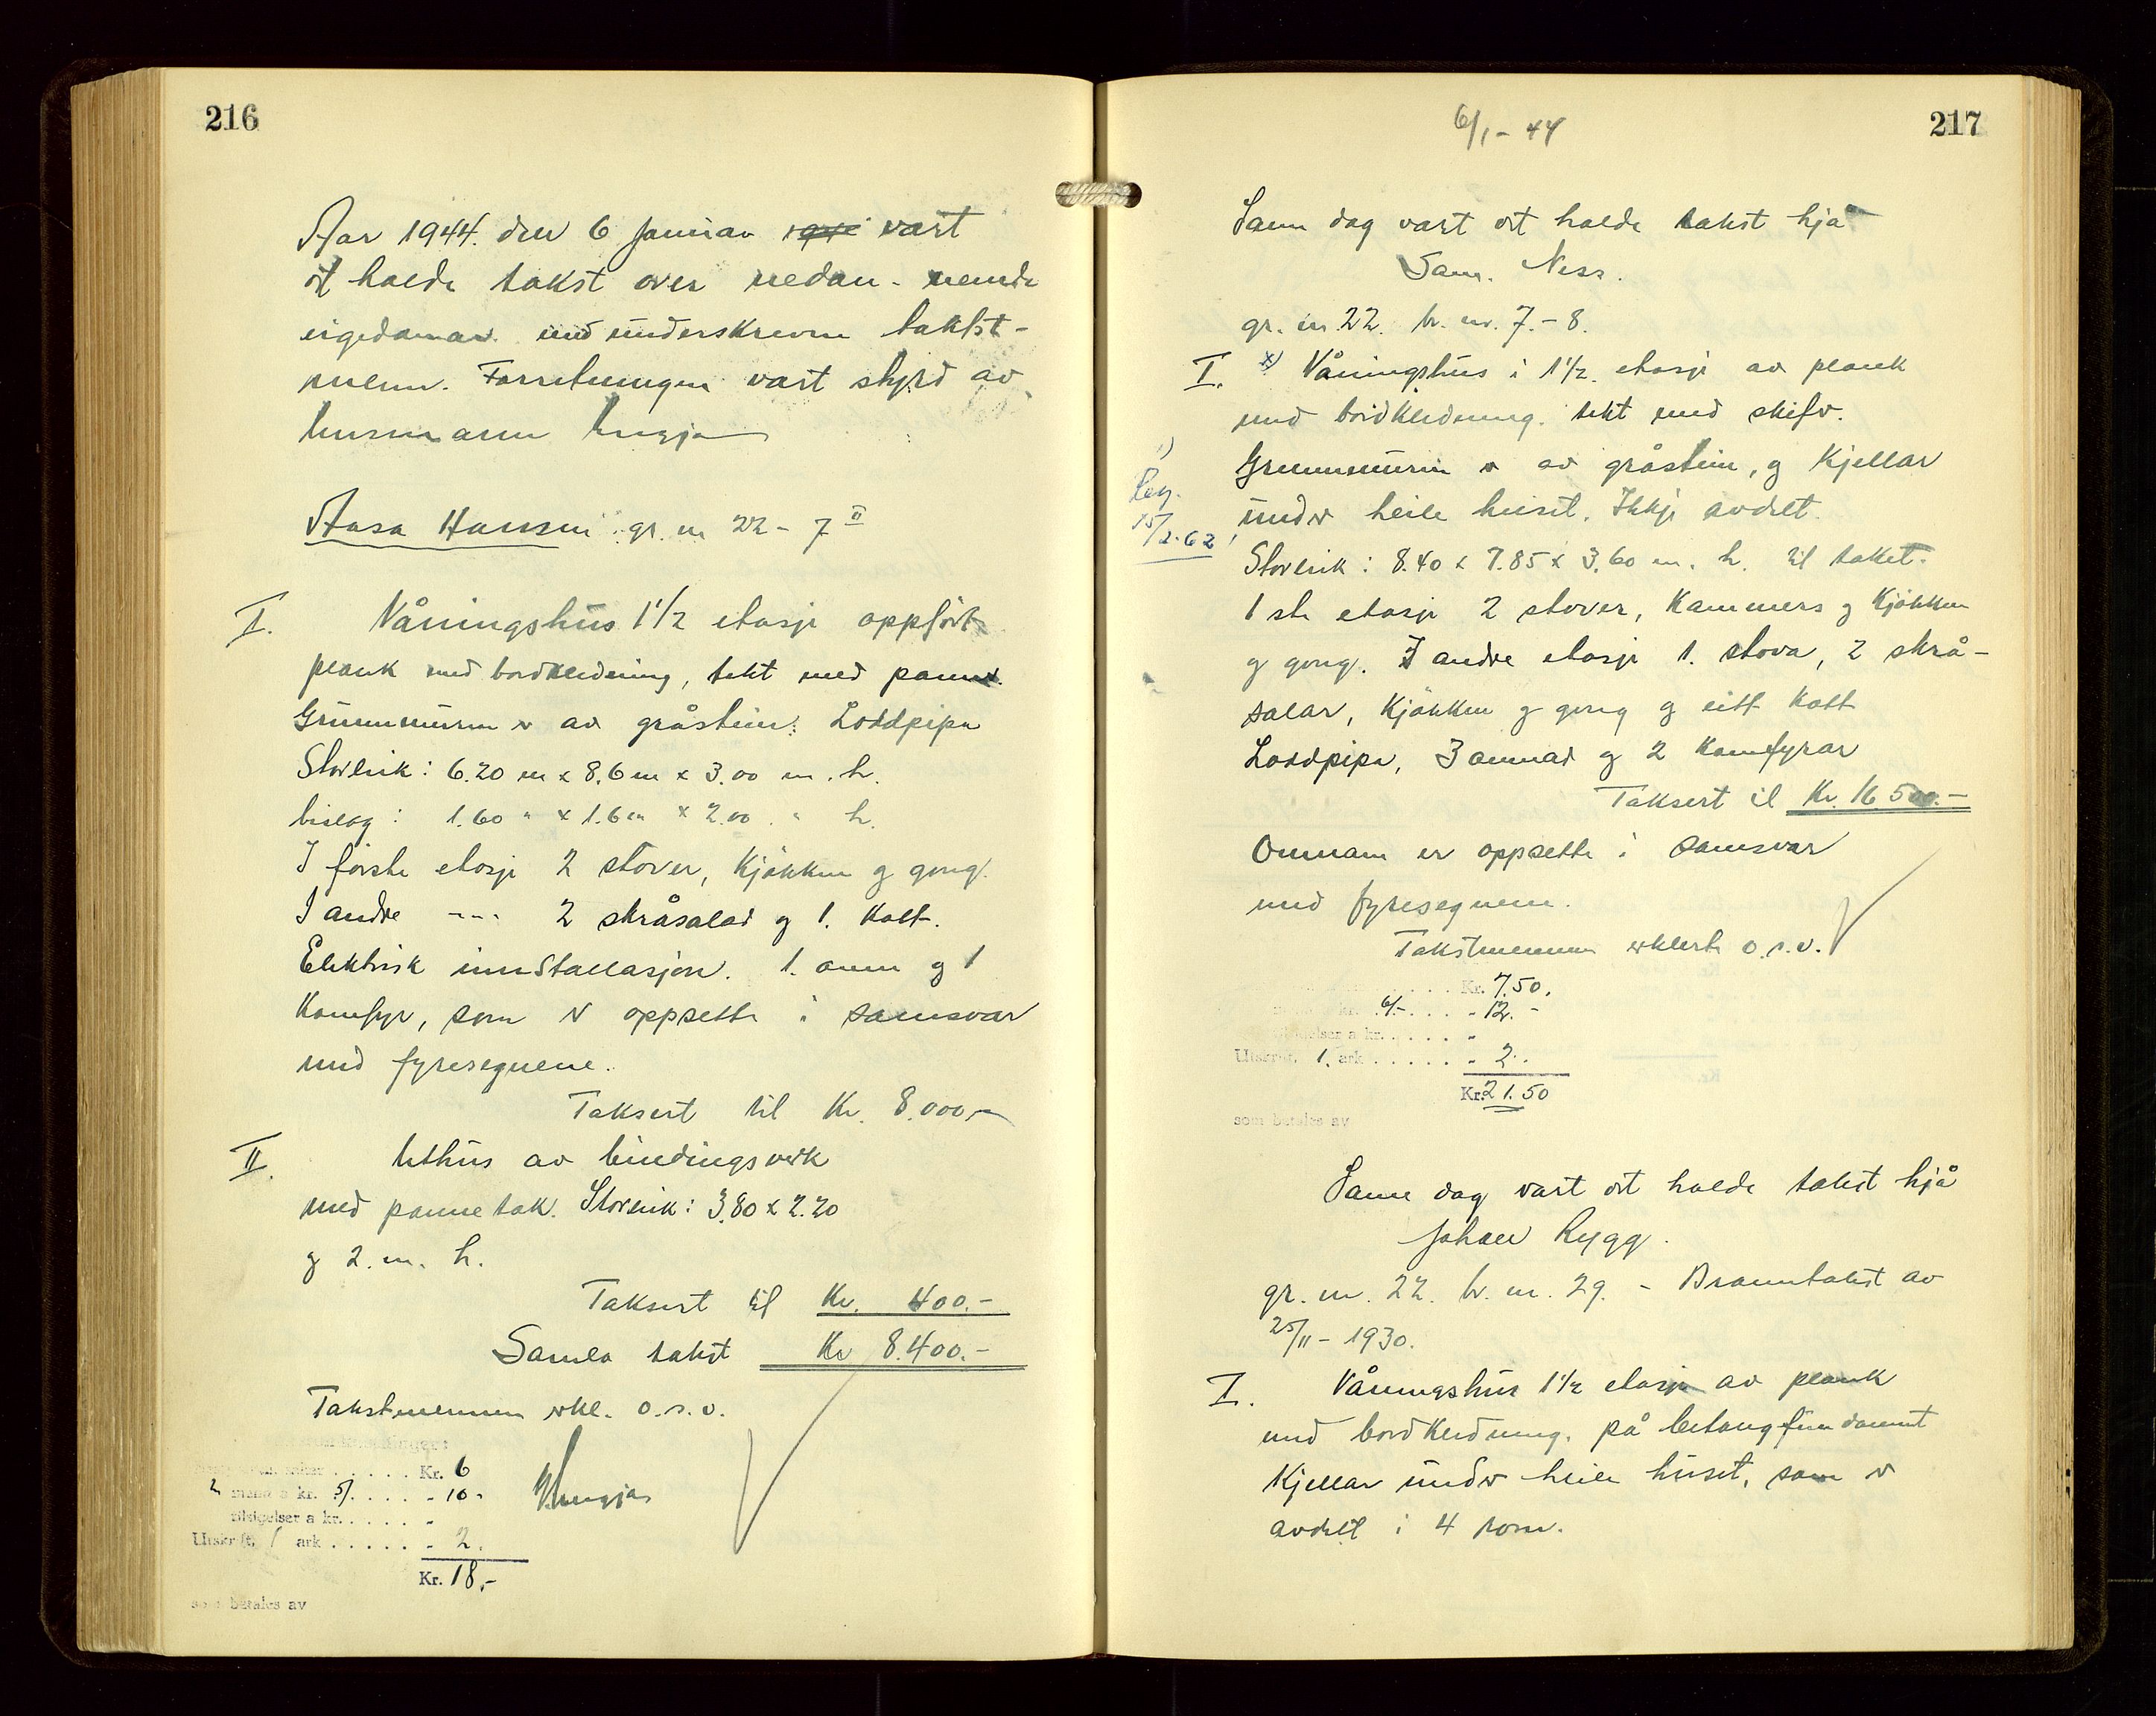 216
Aar 1944. den 6 Januar vart
det halde takst over nedan-nemde
eigedomar med underskrevne takst-
menn. Forretningen vart styrd av
lensmann
Aasa Hansen gr. nr 22 - 7 II
I. Våningshus 1½ etasje oppført
plank med bordkledning, tekt med panner.
Grunnmuren er av gråstein. Loddpipe
Storleik: 6.20 m x 8.6 m x 3.00 m. h.
bislag: 1.60 " x 1.6 m x 2.00 " h.
I første etasje 2 stover, Kjøkken og gong.
I andre -"- 2 skråsalar og 1. Kott.
Elektrisk innstallasjon. 1. omn og 1
Komfyr, som er oppsette i samsvar
med fyresegnene.
Taksert til Kr. 8.000,-
II. Uthus av bindingsverk
med pannetak. Storleik: 3.80 x 2.20
og 2. m. h.
Taksert til Kr. 400.-
Samla takst Kr 8.400.-
Takstmennene erkl. o.s.v.
Kr. 6
2 menn a kr. 5/. . . . . - 10 -
tilsigelser a kr. . . . . . "
Utskrift. 1 ark . . . . . . - 2.
Kr. 18.-
som betales av
6/1 - 44
217
Same dag vart det halde takst hjå
Sam. Ness.
gr. nr. 22. br. nr. 7. - 8.
I. x) Våningshus i 1½. etasje av plank
med bordkledning. tekt med skifer.
Grunnmuren er av gråstein, og Kjellar
under heile huset. Ikkje avdelt.
x)
15/2-62
Storleik: 8.40 x 7.85 x 3.60 m. h. til taket.
1 ste etasje 2 stover, Kammers og Kjøkken
og gong. I andre etasje 1. stova, 2 skrå-
salar, Kjøkken og gong og eitt Kott
Loddpipe, 3 omnar og 2 Komfyrar
Taksert til Kr. 16.500.-
Omnane er oppsette i samsvar
med fyresegnene.
Takstmennene erklerte o.s.v.
Kr. 7.50.
kr. 6/- . . . . - 12. -
tilsigelser a kr. . . . . . "
Utskrift. 1. ark . . . . . . - 2..
Kr. 21.50
som betales av
Same dag vart det halde takst hjå
Johan Rygg.
gr. nr. 22. br. nr. 29. - Branntakst av
25/11 - 1930.
I. Våningshus 1½ etasje av plank
med bordkledning. på betongfundament
Kjellar under heile huset, som er
avdelt i 4 rom.